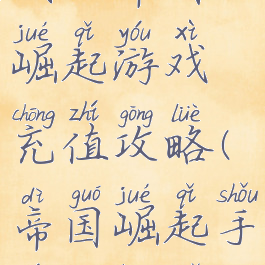 jué qǐ yóu xì
崛起游戏
chōng zhí gōng lüè
充值攻略(
dì guó jué qǐ shǒu
帝国崛起手